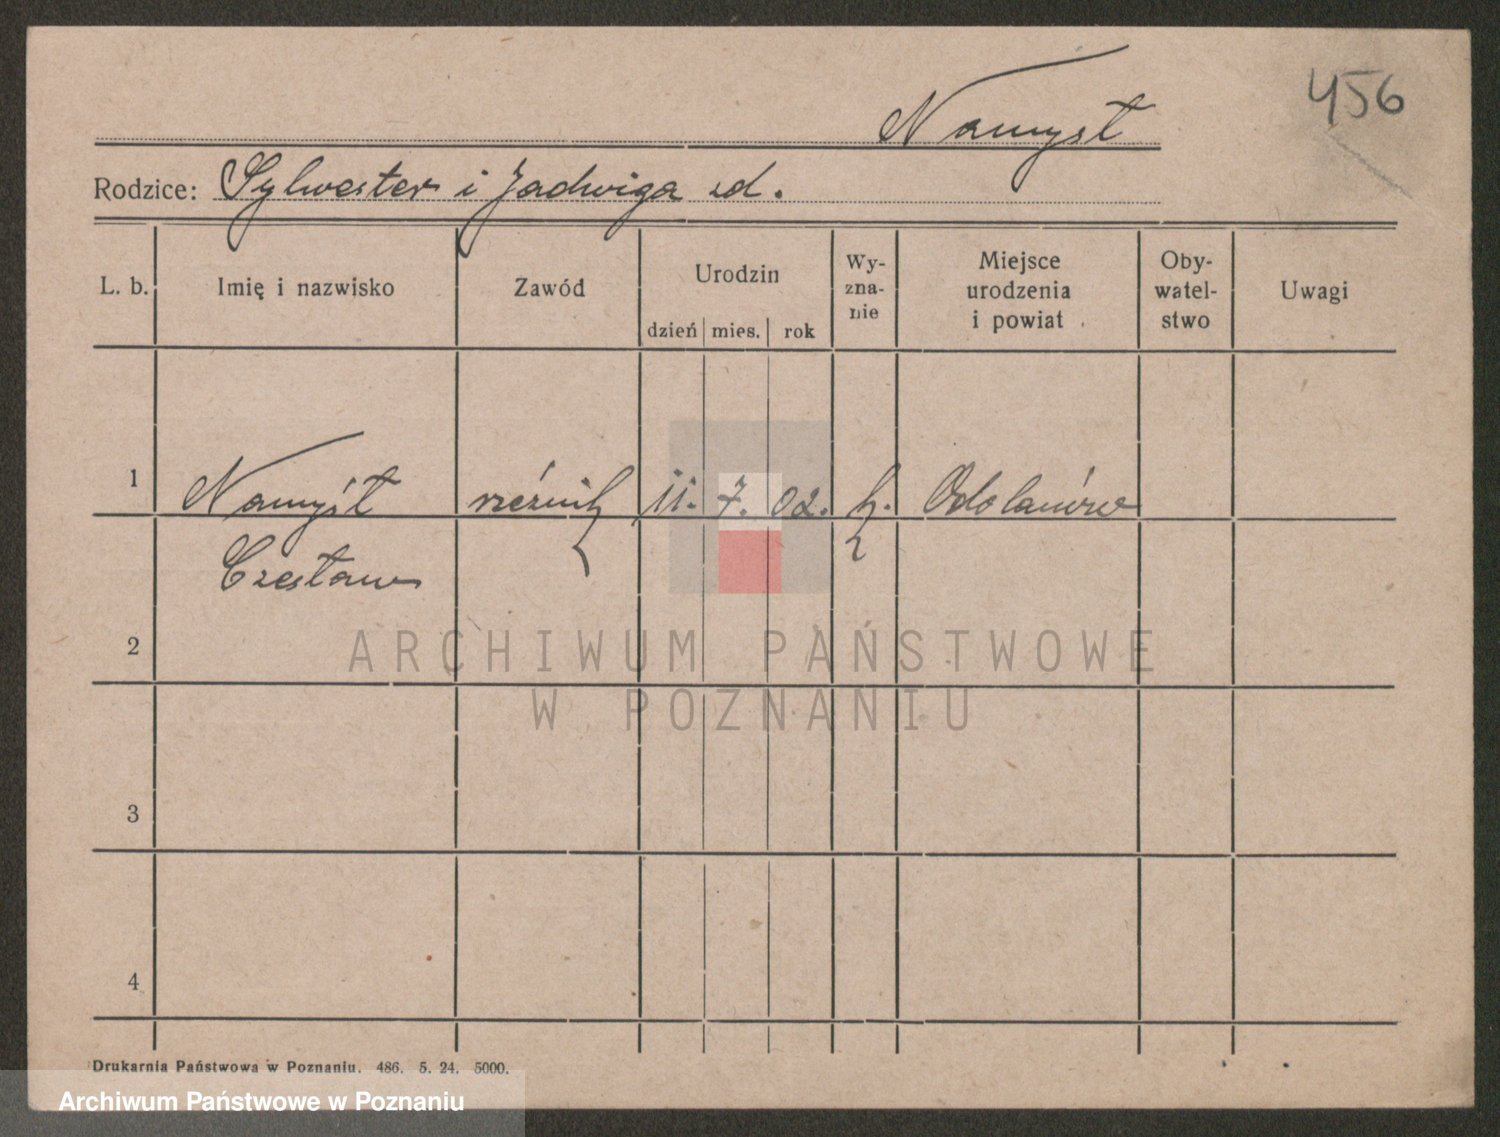 456
Namysł
Rodzice: Sylwester i Jadwiga zd.
L. b. Imię i nazwisko Zawód Urodzin dzień mies. rok Wy-zna-nie Miejsce urodzenia i powiat Oby-watel-stwo Uwagi
1 Namysł rzeźnik 11. 7. 02. k. Odolanów
Czesław
2
ARCHIWUM PAŃSTWOWE
W POZNANIU
3
4
Drukarnia Państwowa w Poznaniu. 486. 5. 24. 5000.
Archiwum Państwowe w Poznaniu